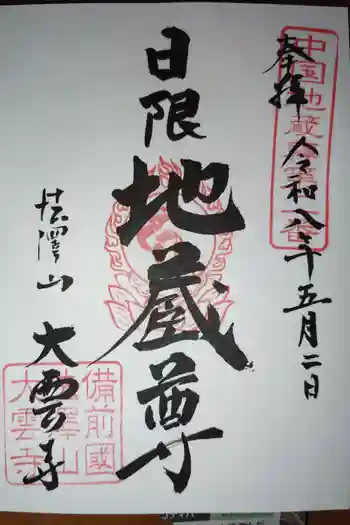 奉拝 令和八年五月二日
中国地蔵尊第一番
日限地蔵尊
法澤山 大雲寺
備前國
法澤山
大雲寺